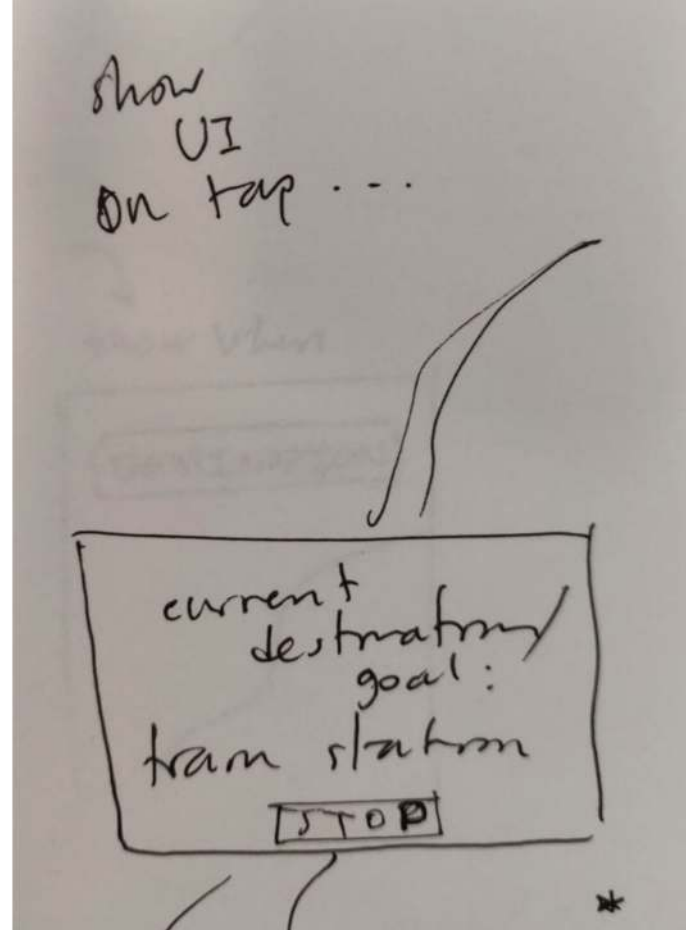 show
UI
on tap ...
show when
current
destination/
goal:
train station
STOP
*